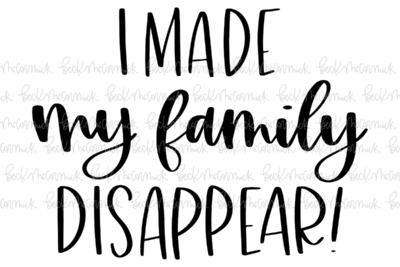 I MADE
my family
DISAPPEAR!